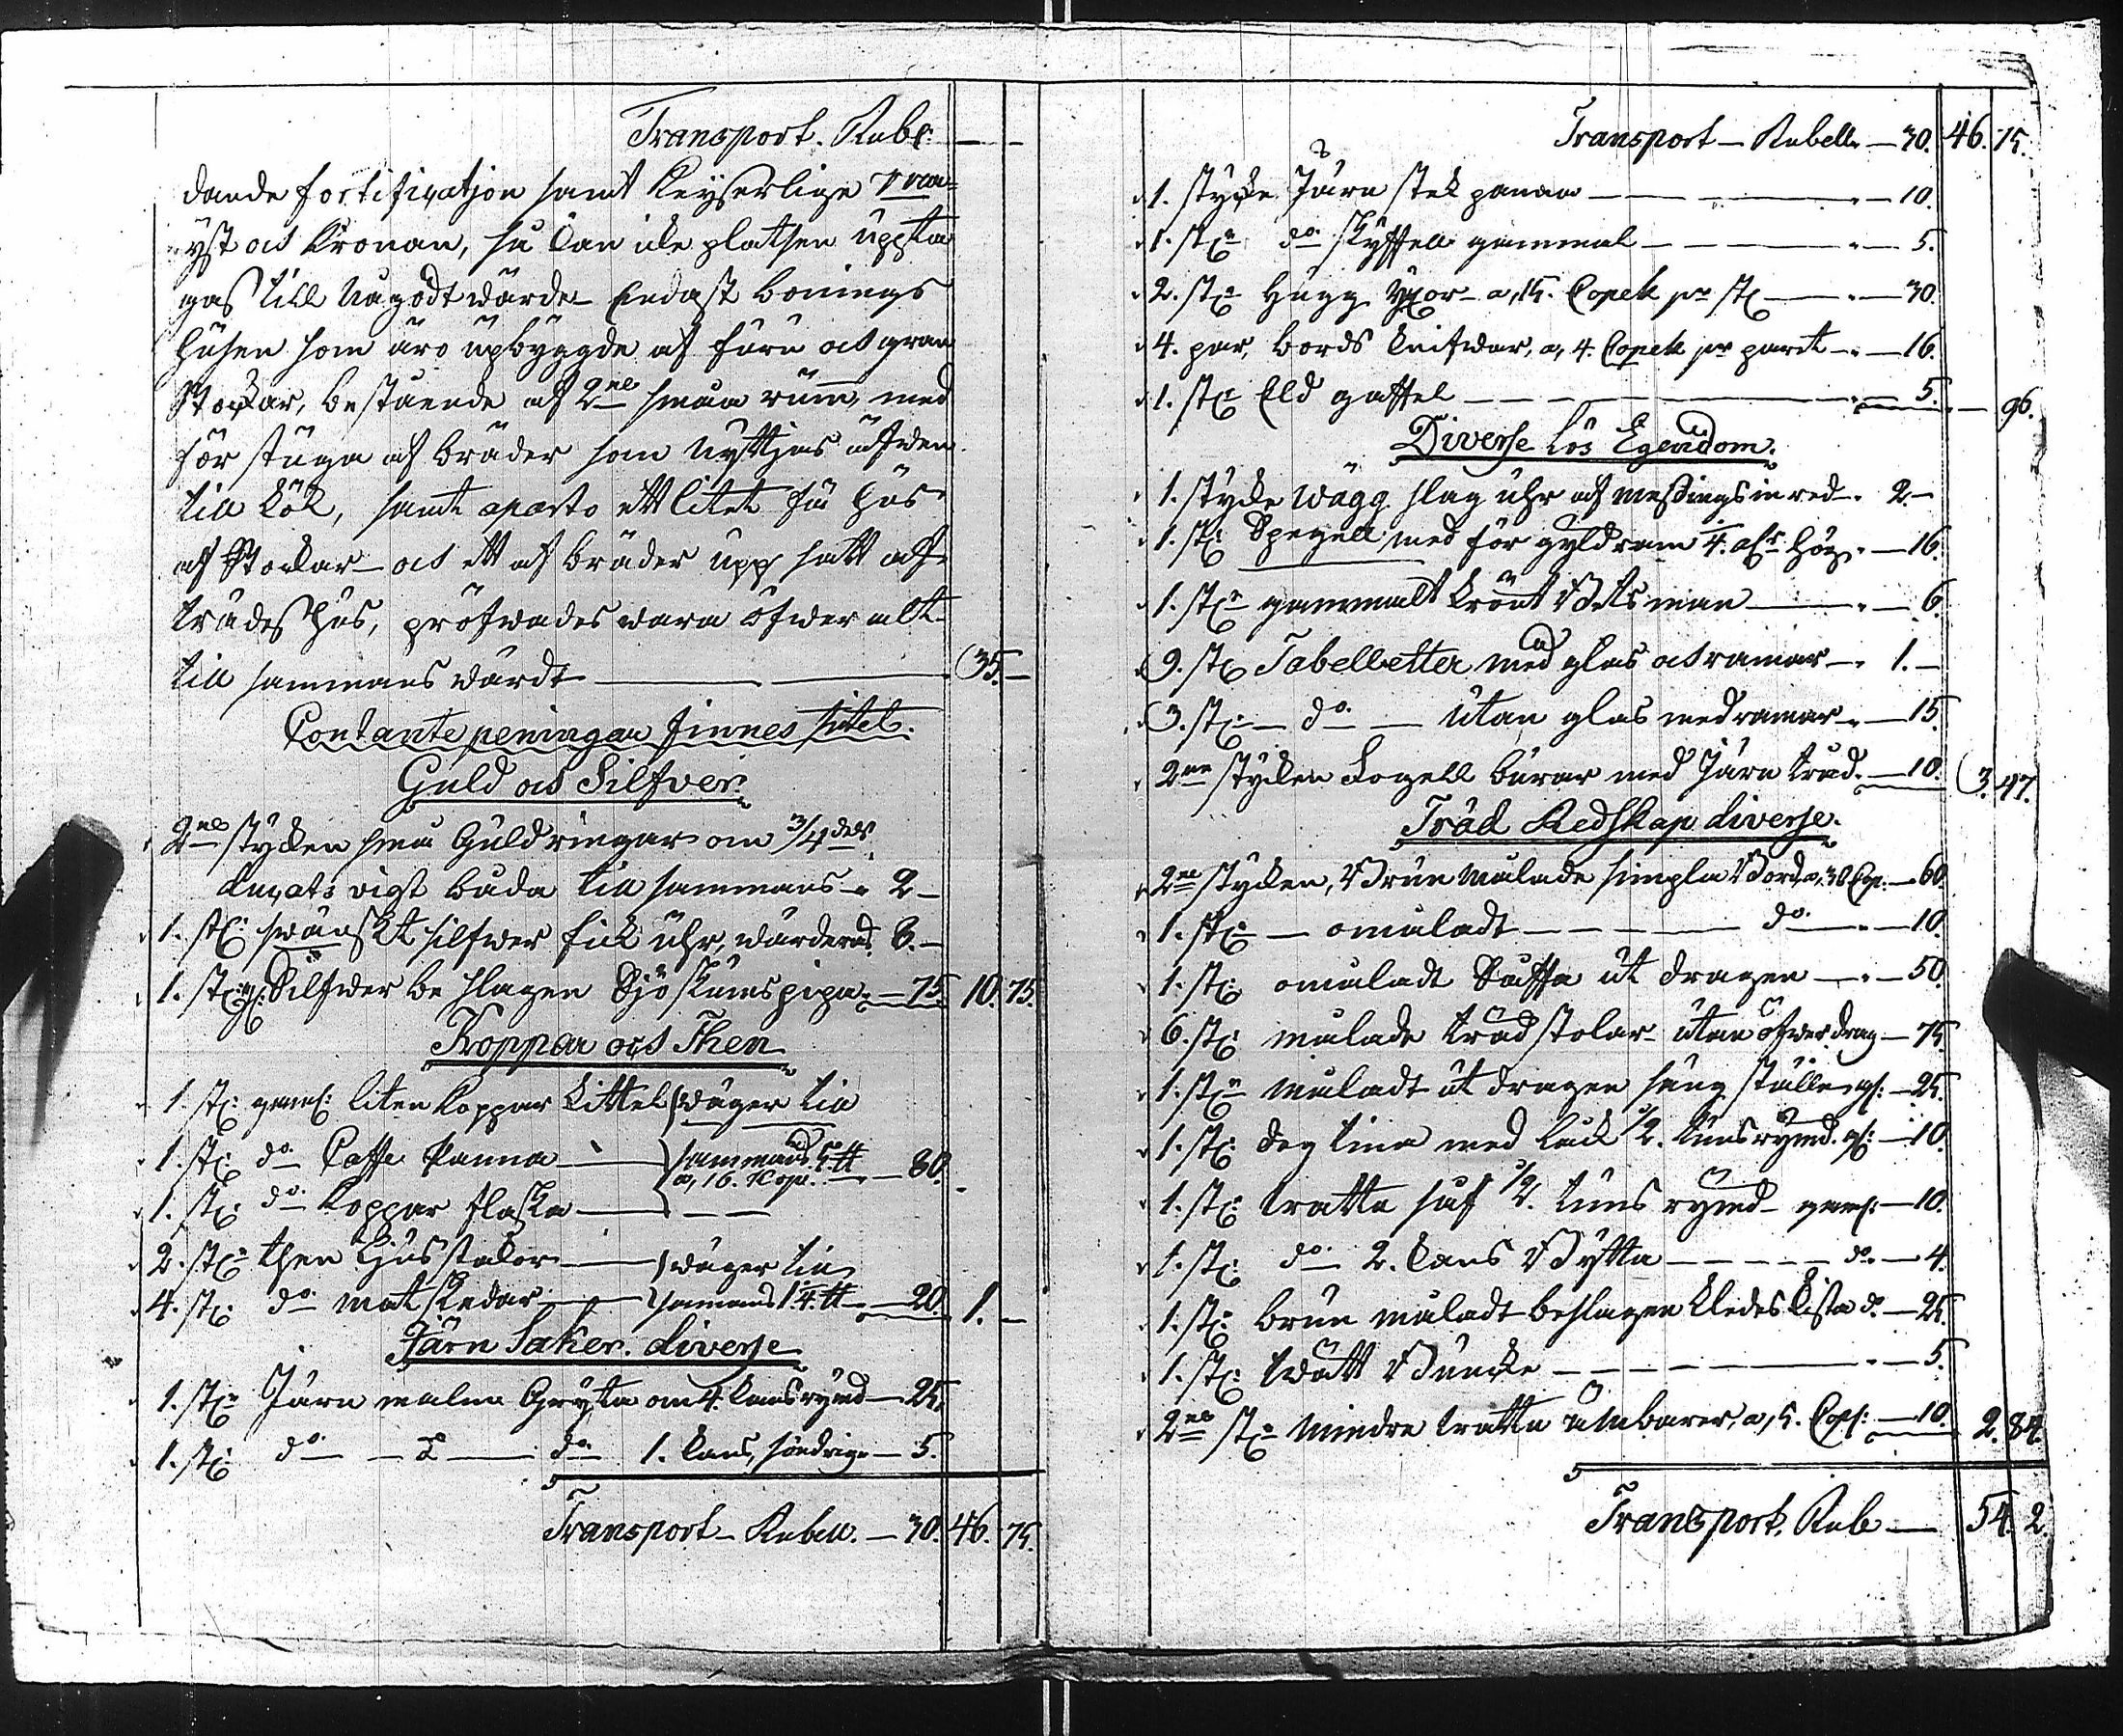 Transport. Rube: — —
dande fortification samt Keyserlige
yst och Kronan, så kan icke platsen uppta
gas till någodt wärde Endast bonings
husen som äro upbyggde af furu och gran
Stockar, bestående af 2ne smaa rum, med
förstuga af bräder som nyttjas äfwen
till kök, samt aparto ett litet fä hus
af Stockar och ett af bräder upp satt aff
trädes hus, pröfwades wara öfwer allt
till sammans wärdt — 35. —
Contante peningar finnes intet.
Guld och Silfver.
2ne stycken små Guldringar om 3/4 dels
ducats vigt båda till sammans — 2 —
1. st: swänskt silfwer fick uhr, wärderad. 8. —
1. st: gl: Silfwer be slagen Sjöskumspipa — 75. 10. 75.
Koppar och Then
1 st: gaml: liten Koppar kittel wäger till
1. st: do Caffe Panna — sammans 5 ℔
a, 16. Kop. — 80.
1. st: do Koppar flaska —
2. st: then Ljusstakar — wäger till
4. st: do matskedar — samans 1 1/4 ℔ — 20. 1. —
Järn Saker. diverse
1. st: Järn malm Gryta om 4. kans rymd — 25.
1. st: do — do 1. kans, söndrig — 5.
Transport Rubell. — 30. 46. 75.
Transport — Rubell. — 30. 46. 75.
1. stycke Järn stek panna — 10.
1. st: do skyffell gammal — 5.
2. st: Hugg Yxor a, 15. Copek pr st — 30.
4. par, bords knifwar, a, 4. Copek pr paret — 16.
1. st: Eld gaffel — 5. — 96.
Diverse lös Egendom.
1. stycke wägg slag uhr af messings inred. 2 —
1. st: Spegell med för gyld ram 1/4. aln hög. — 16.
1. st: gammalt krönt Betsman — 6.
9. st: Tabelletter med glas och ramar — 1. —
3. st: — do — utan glas med ramar — 15.
2ne stycken Fogell burar med Järn tråd. — 10. 3. 47.
Träd Redskap diverse.
2ne stycken, Brun målade simpla Bord, a, 30 Cop: — 60.
1. st: — omåladt — do — 10.
1. st: omåladt Säffa ut dragen — 50.
6. st: målade träd stolar utan öfwer drag — 75.
1. st: måladt ut dragen säng ställe gl: — 25.
1. st: deg tina med lock 1/2. tuns rymd. gl: — 10.
1. st: tratta så 1/2. tuns rymd gaml: — 10.
1. st: do 2. kans Bytta — do — 4.
1. st: brun måladt beslagen kledes kista do — 25.
1. st: twätt Buncke — 5.
2ne st: mindre tratta ämbarer, a, 5. Cop: — 10. 2. 84.
Transport. Rube — 54. 2.